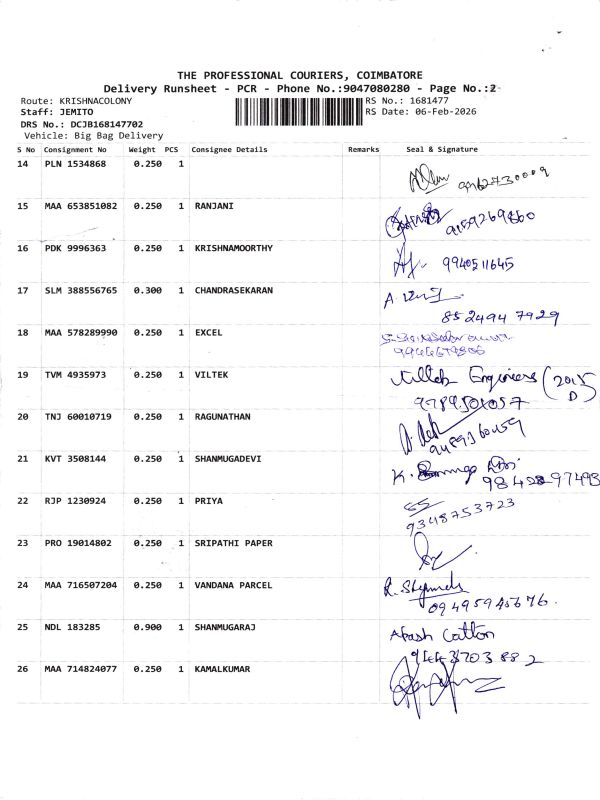 THE PROFESSIONAL COURIERS, COIMBATORE
Delivery Runsheet - PCR - Phone No.:9047080280 - Page No.:2
Route: KRISHNACOLONY RS No.: 1681477
Staff: JEMITO RS Date: 06-Feb-2026
DRS No.: DCJB168147702
Vehicle: Big Bag Delivery
S No Consignment No Weight PCS Consignee Details Remarks Seal & Signature
14 PLN 1534868 0.250 1
15 MAA 653851082 0.250 1 RANJANI
9159269860
16 PDK 9996363 0.250 1 KRISHNAMOORTHY
9940511645
17 SLM 388556765 0.300 1 CHANDRASEKARAN
852494 7929
18 MAA 578289990 0.250 1 EXCEL
19 TVM 4935973 0.250 1 VILTEK
Viltek Engineers (2015
D)
20 TNJ 60010719 0.250 1 RAGUNATHAN
21 KVT 3508144 0.250 1 SHANMUGADEVI
22 RJP 1230924 0.250 1 PRIYA
9348753723
23 PRO 19014802 0.250 1 SRIPATHI PAPER
24 MAA 716507204 0.250 1 VANDANA PARCEL
25 NDL 183285 0.900 1 SHANMUGARAJ
Akash Cotton
9443703882
26 MAA 714824077 0.250 1 KAMALKUMAR